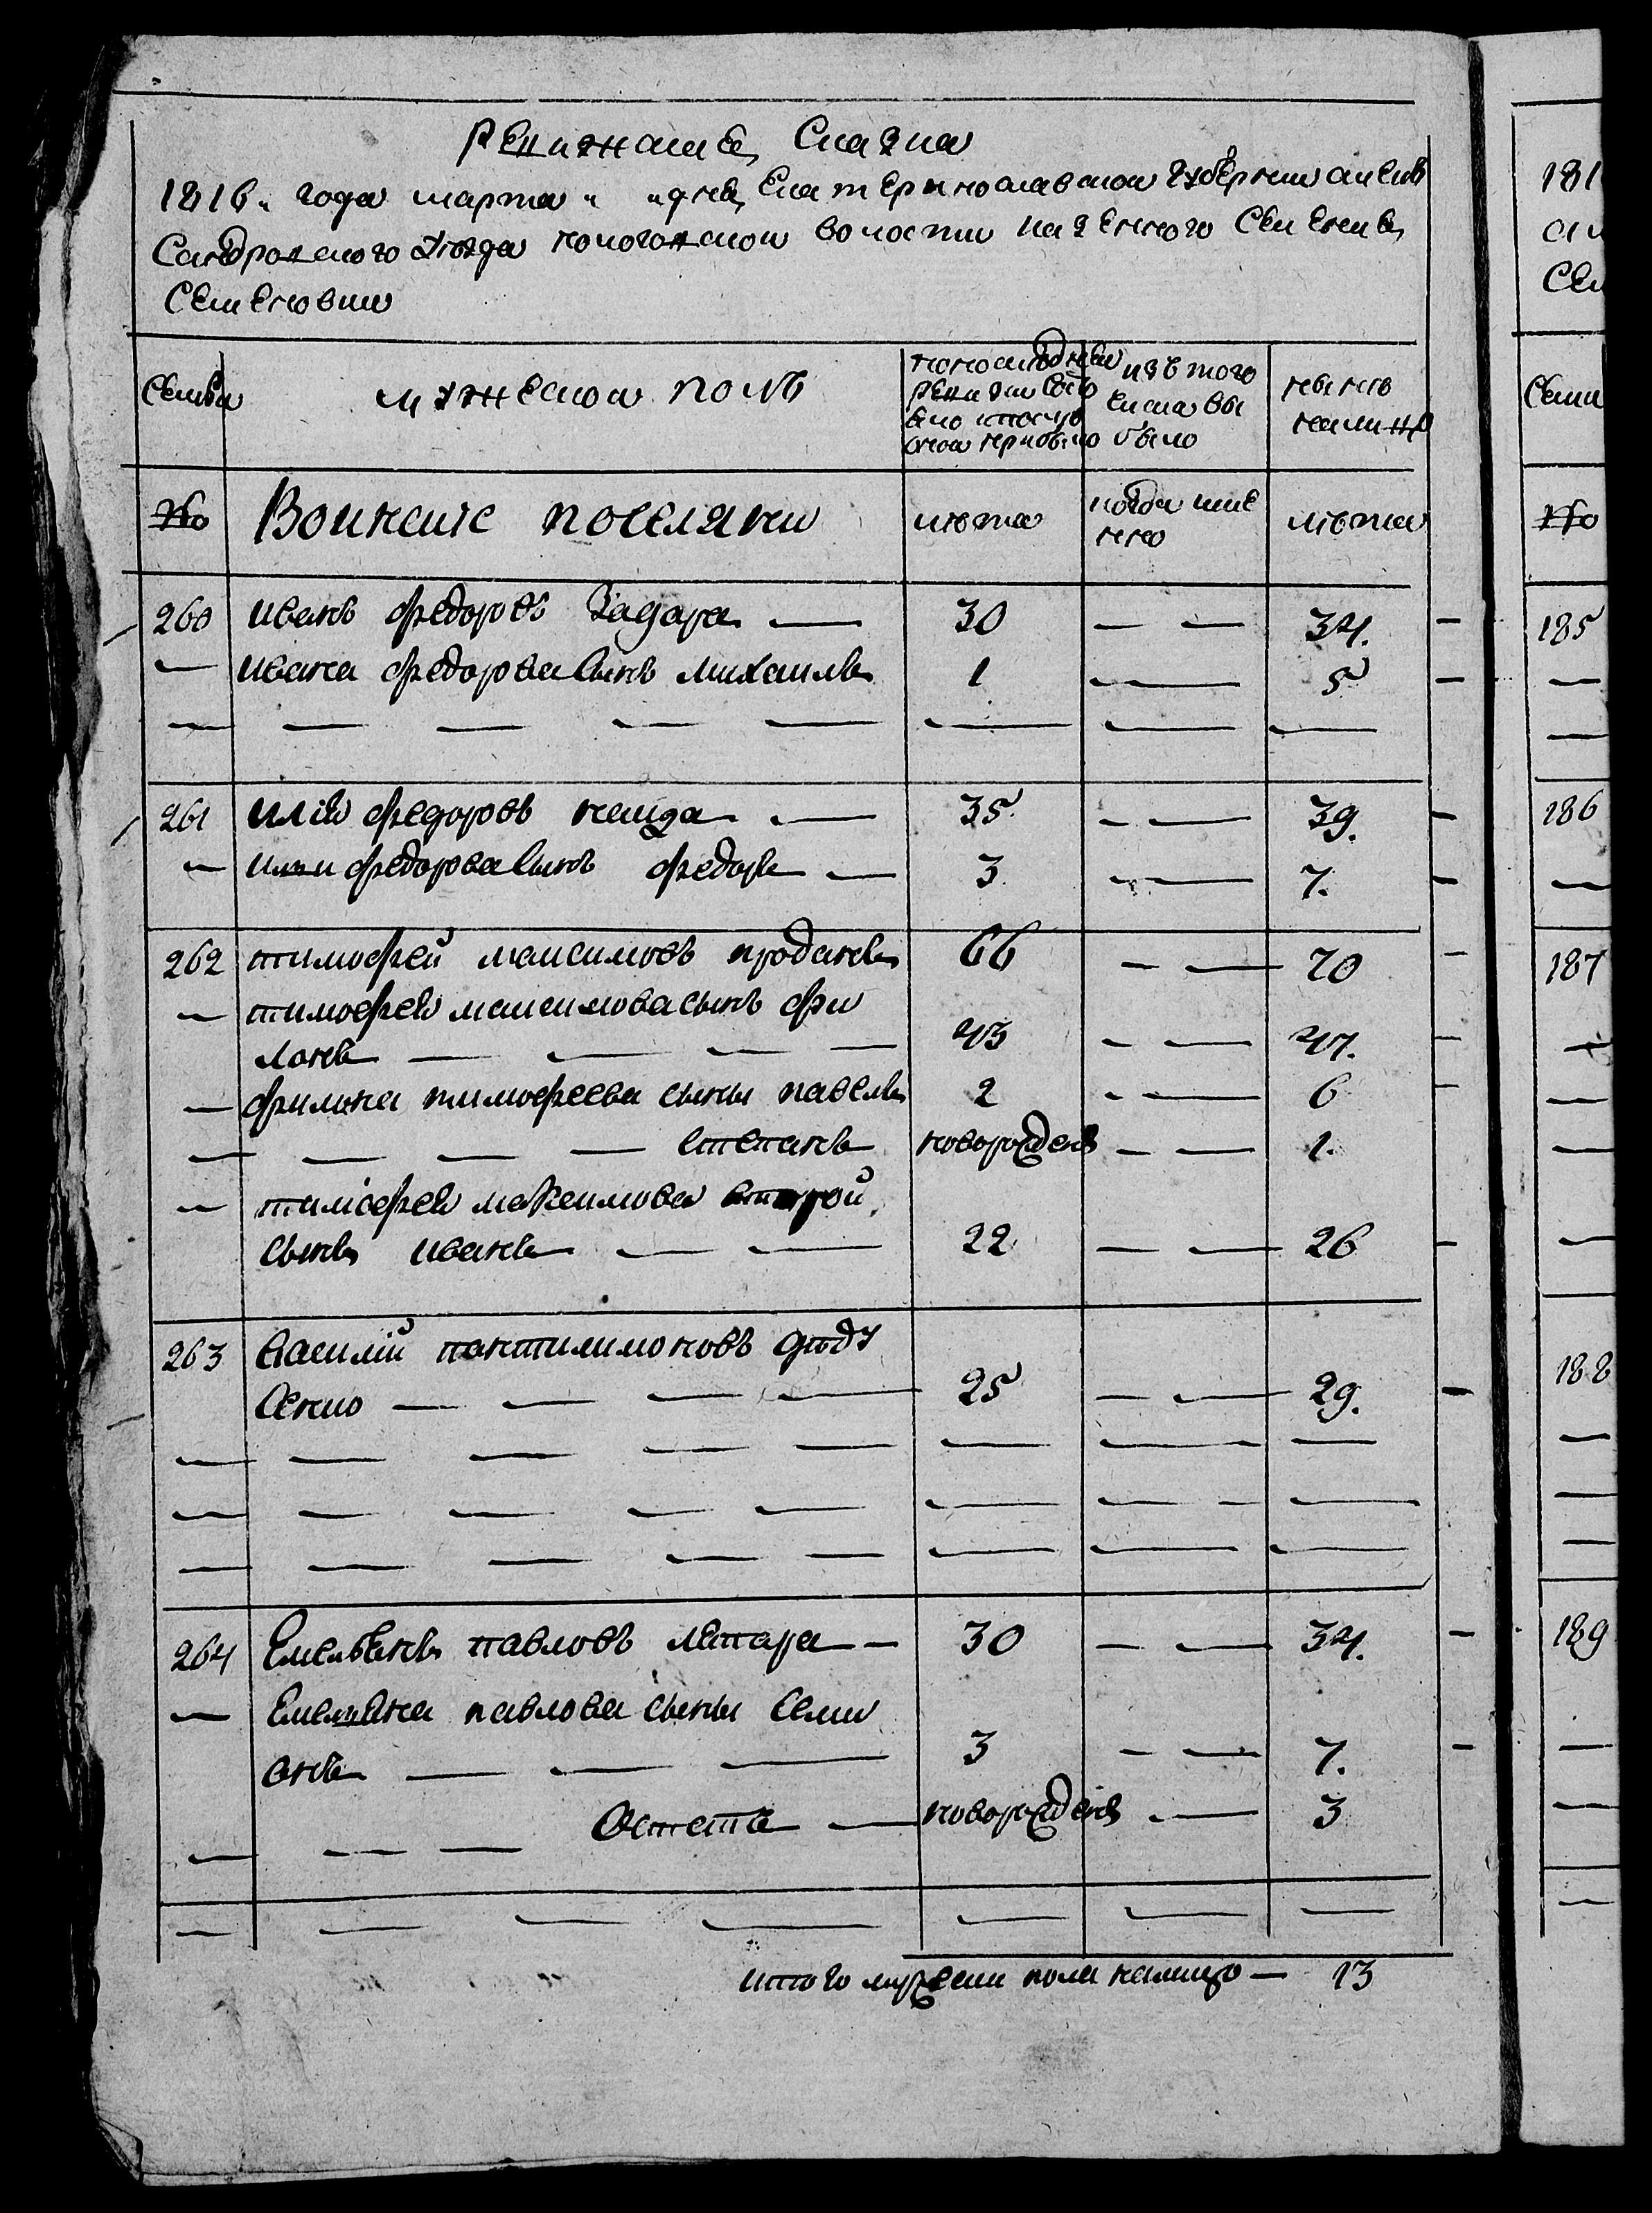 Ревижская Сказка
1816 года марта " " дня, Екатеринославской губернии Алек
сандровского уезда волости казенного Селения
Семеновки
Семьи
мужеской полъ
по последней ревизии состояло и после оной прибыло
изъ того числа выбыло
ныне налицо
№
Воинские поселяни
лета
когда именно
лета
260 Иванъ Федоровъ — 30 — — 34.
— Ивана Федорова Сынъ Михаилъ 1 — 5
— — — — — — — —
261 Илія Федоровъ — 35. — — 39.
— Ильи Федорова Сынъ Федоръ — 3 — — 7.
262 Тимофей Максимовъ проданъ 66 — — 70
— Тимофея Максимова сынъ Фи
лонъ — — — — 43 — — 47.
— Филона Тимофеева сыны Павелъ 2 — — 6
— — — — Степанъ новорожденъ — — 1.
— Тимофея Максимова второй
Сынъ Иванъ — — 22 — — 26
263 Василій Пантилимоновъ Деду
сенко — — — — 25 — — 29.
— — — — — — — —
— — — — — — — — —
— — — — — — — —
264 Емельянъ Павловъ — 30 — — 34.
— Емельяна Павлова сыны Семи
онъ — — — 3 — — 7.
— — — Остапъ — новорожденъ — 3
— — — — — — —
Итого мужеска пола налицо — 13
181
Сем
Семи
№
185
—
—
186
—
187
—
—
—
—
188
—
—
—
189
—
—
—